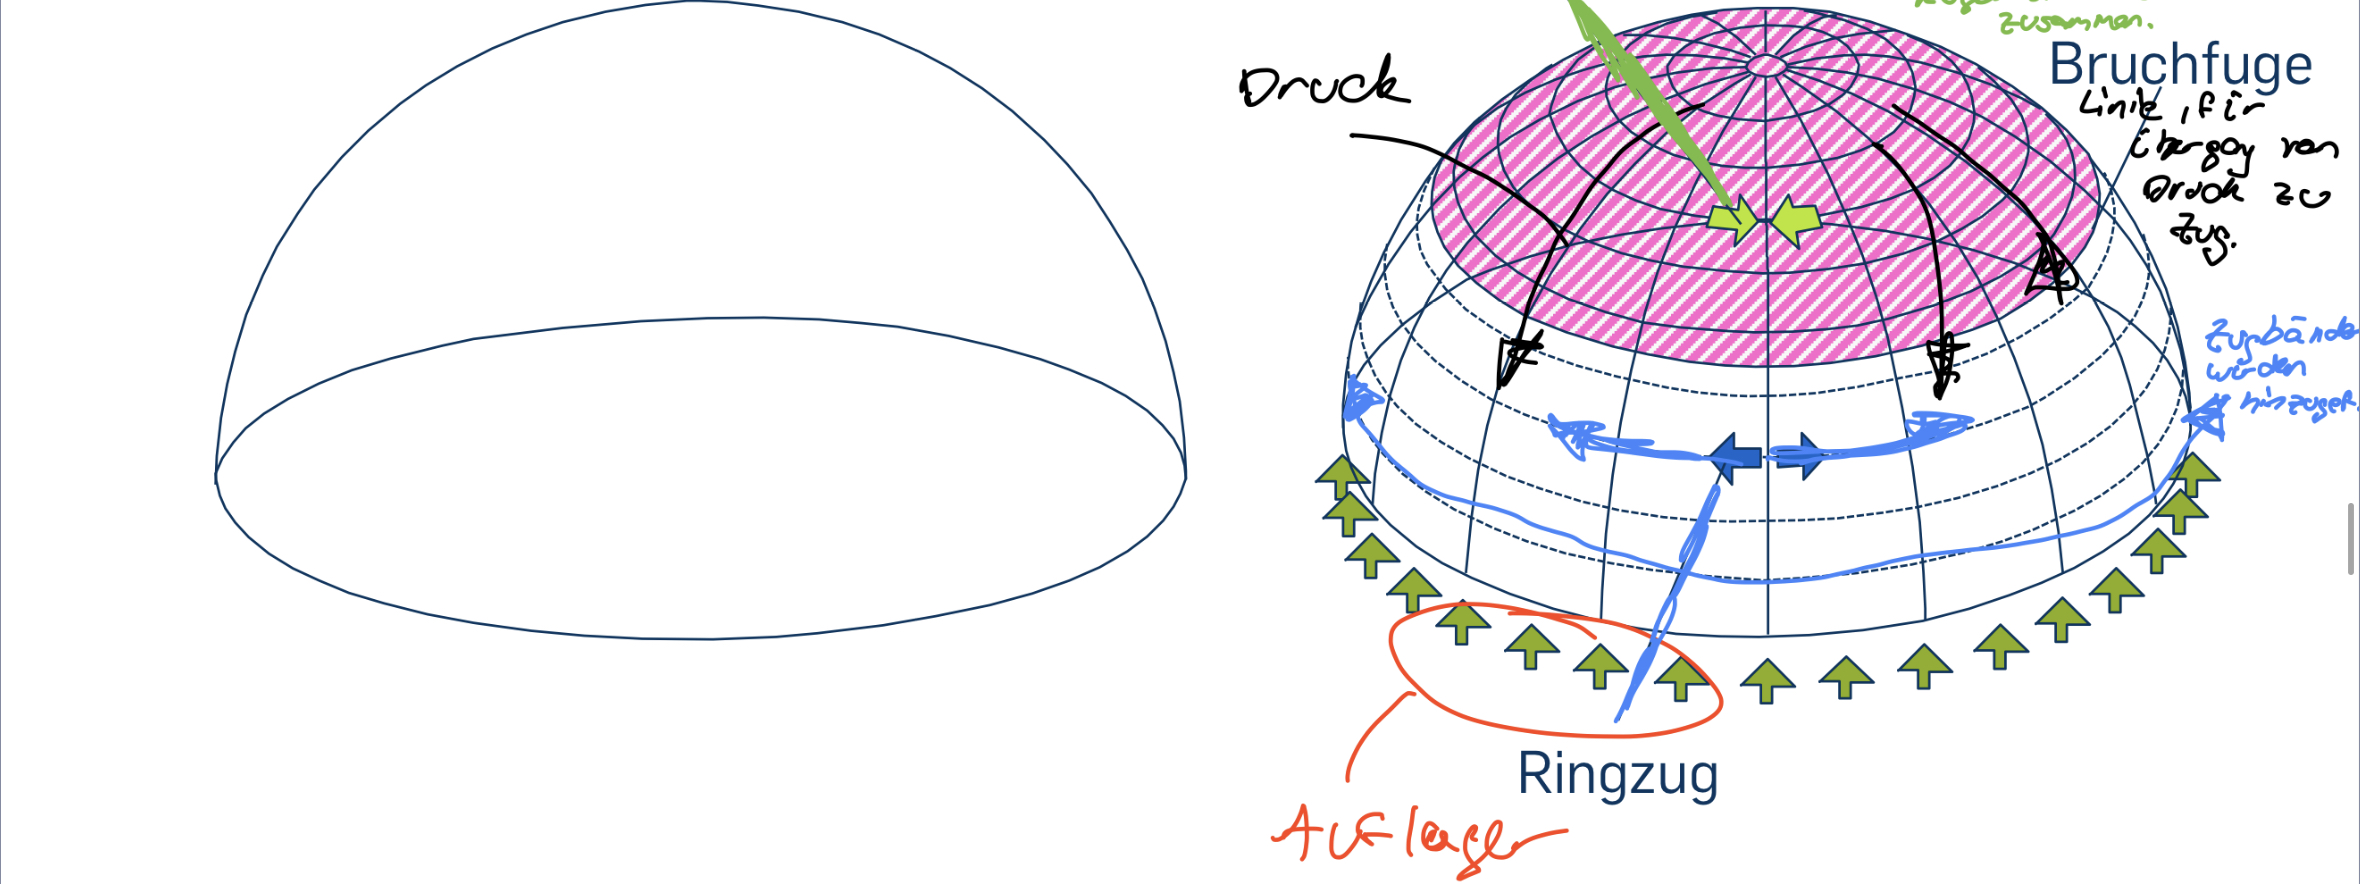 zusammen.
Druck
Bruchfuge
Linie, für
übergang von
Druck zu
Zug.
Zugbände
würden
hinzugef.
Ringzug
Auflager